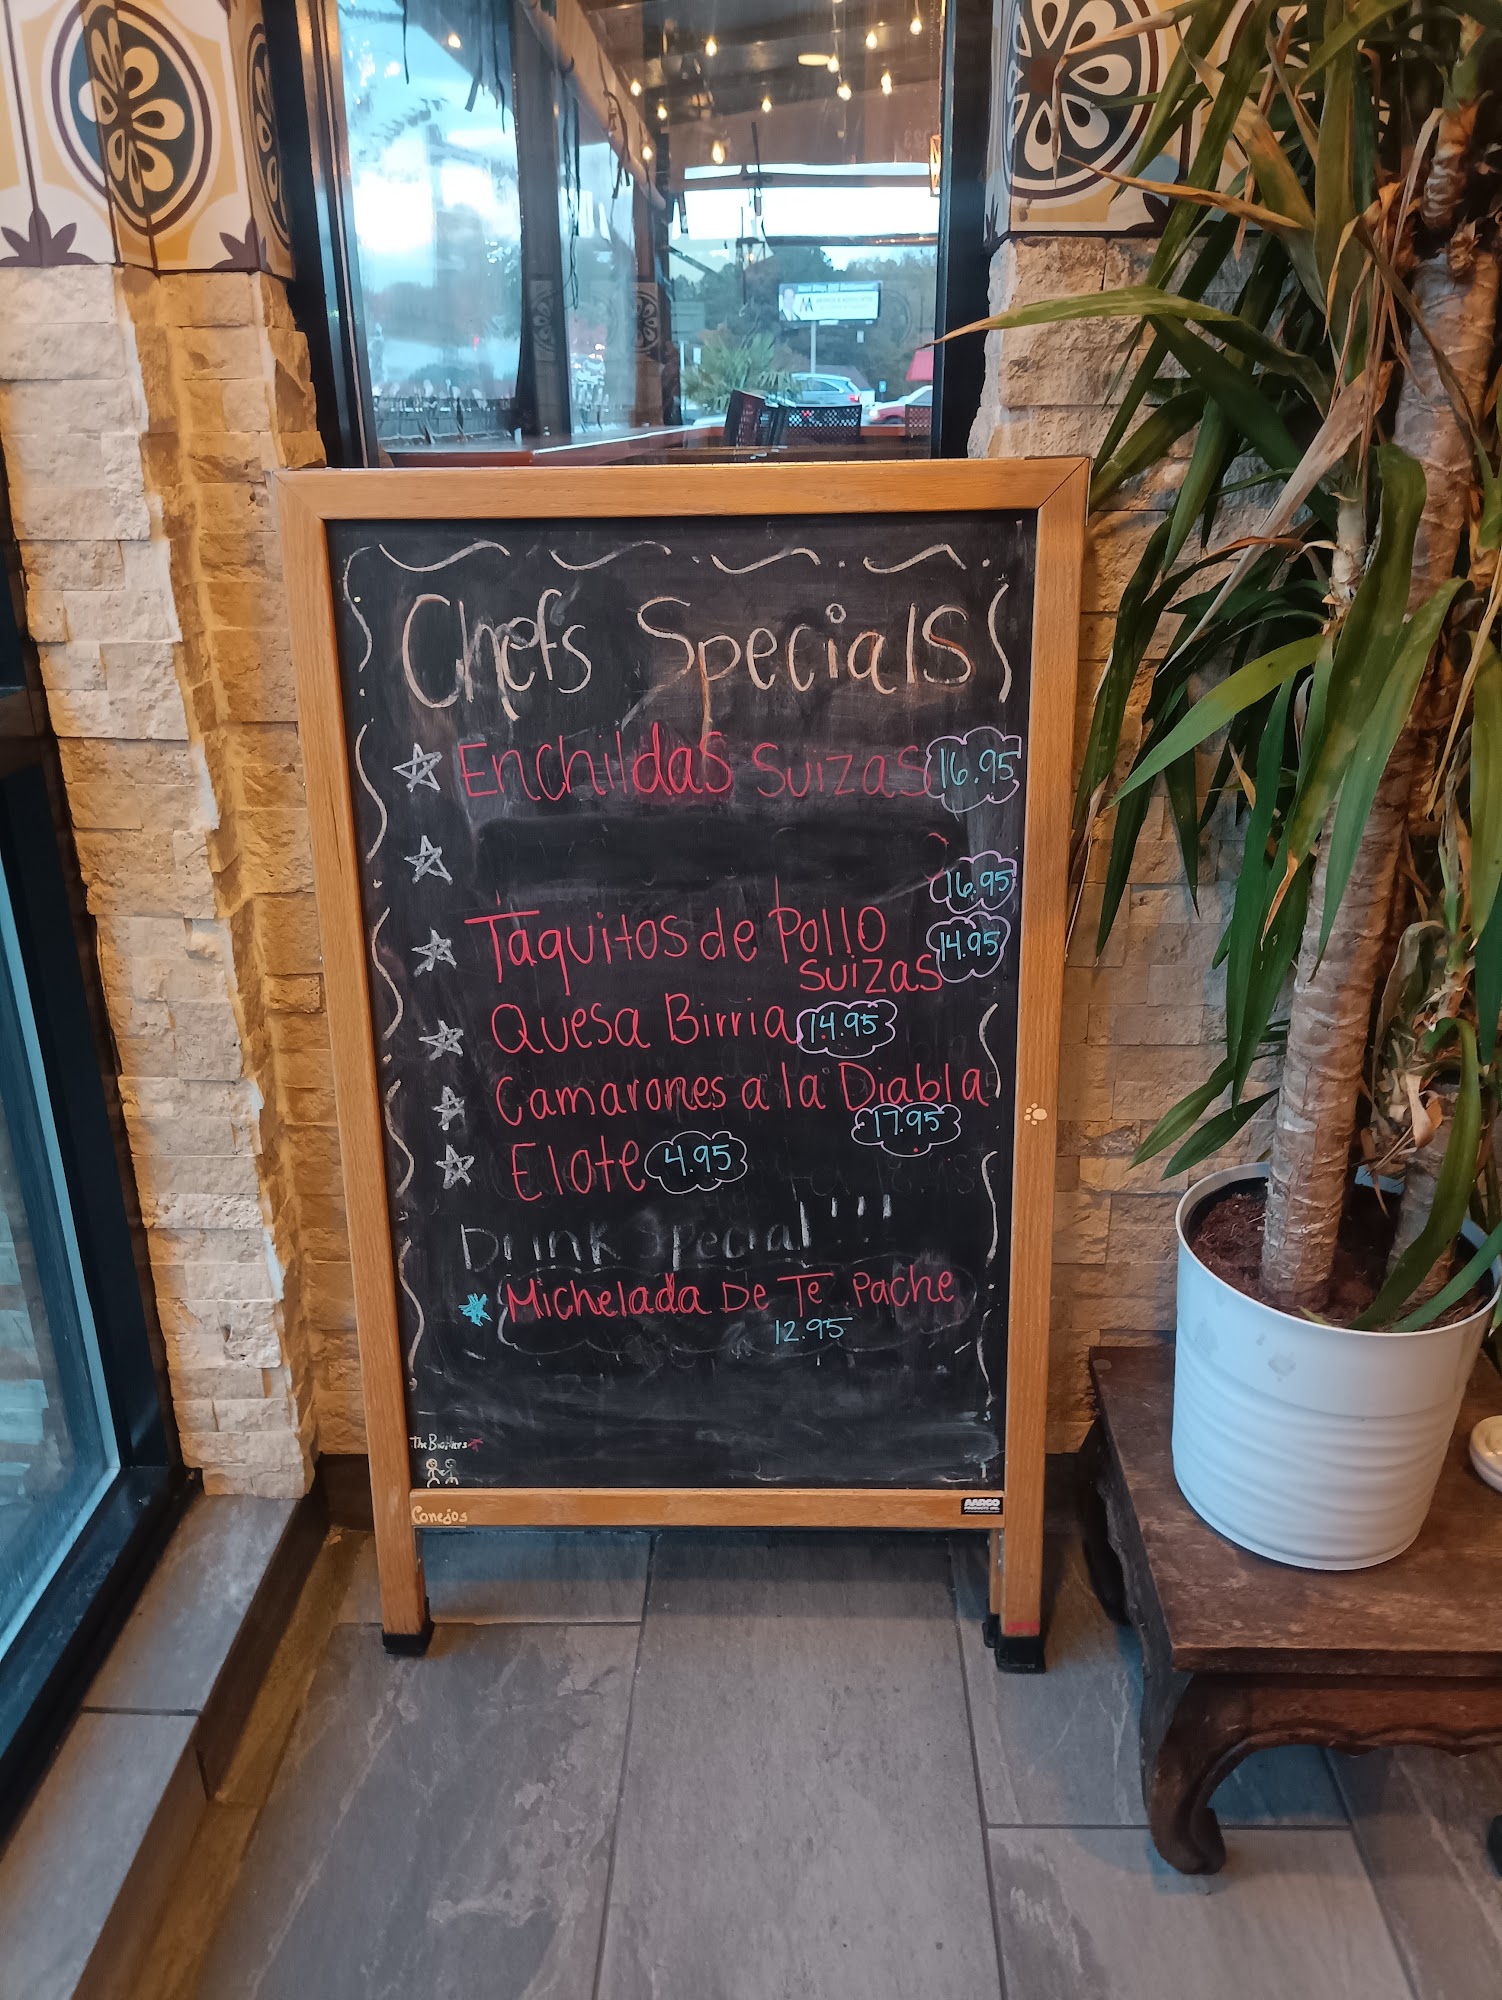 Chefs Specials
Enchildas Suizas 16.95
16.95
Taquitos de Pollo 14.95
Suizas
Quesa Birria 14.95
Camarones a la Diabla
17.95
Elote 4.95
Drink Special!!!
Michelada De Te Pache
12.95
The Brothers
Conejos
AARCO